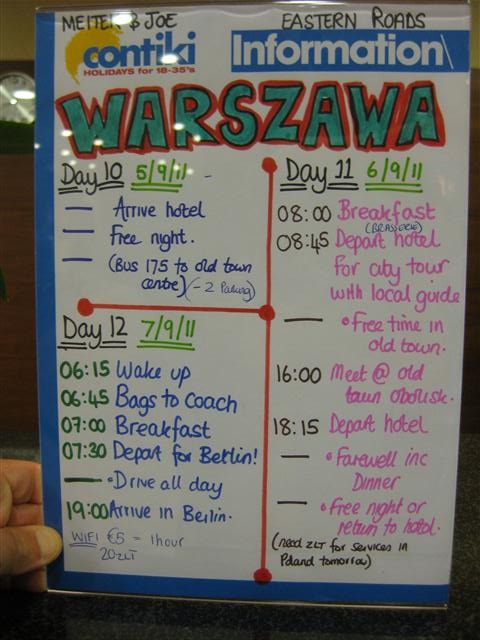 MEITER & JOE
EASTERN ROADS
contiki
HOLIDAYS for 18-35's
Information
WARSZAWA
Day 10 5/9/11 -
— Arrive hotel
— Free night.
— (Bus 175 to old town
centre) (-2 Parking)
Day 12 7/9/11
06:15 Wake up
06:45 Bags to coach
07:00 Breakfast
07:30 Depart for Berlin!
— • Drive all day
19:00 Arrive in Berlin.
WIFI €5 = 1 hour
20 ZLT
Day 11 6/9/11
08:00 Breakfast
(BRASSERIE)
08:45 Depart hotel
for city tour
with local guide
— • Free time in
old town.
16:00 Meet @ old
town obolisk.
18:15 Depart hotel
— • Farewell inc
Dinner
— • Free night or
return to hotel.
(need ZLT for services in
Poland tomorrow)